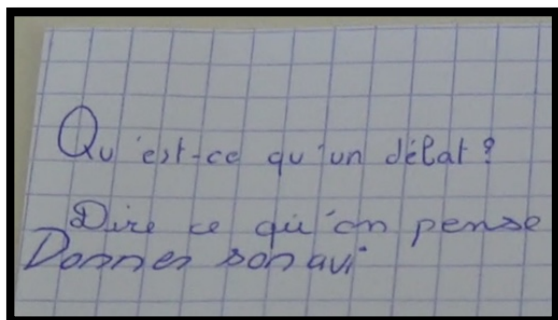 Qu'est-ce qu'un débat ?
Dire ce qu'on pense
Donner son avi